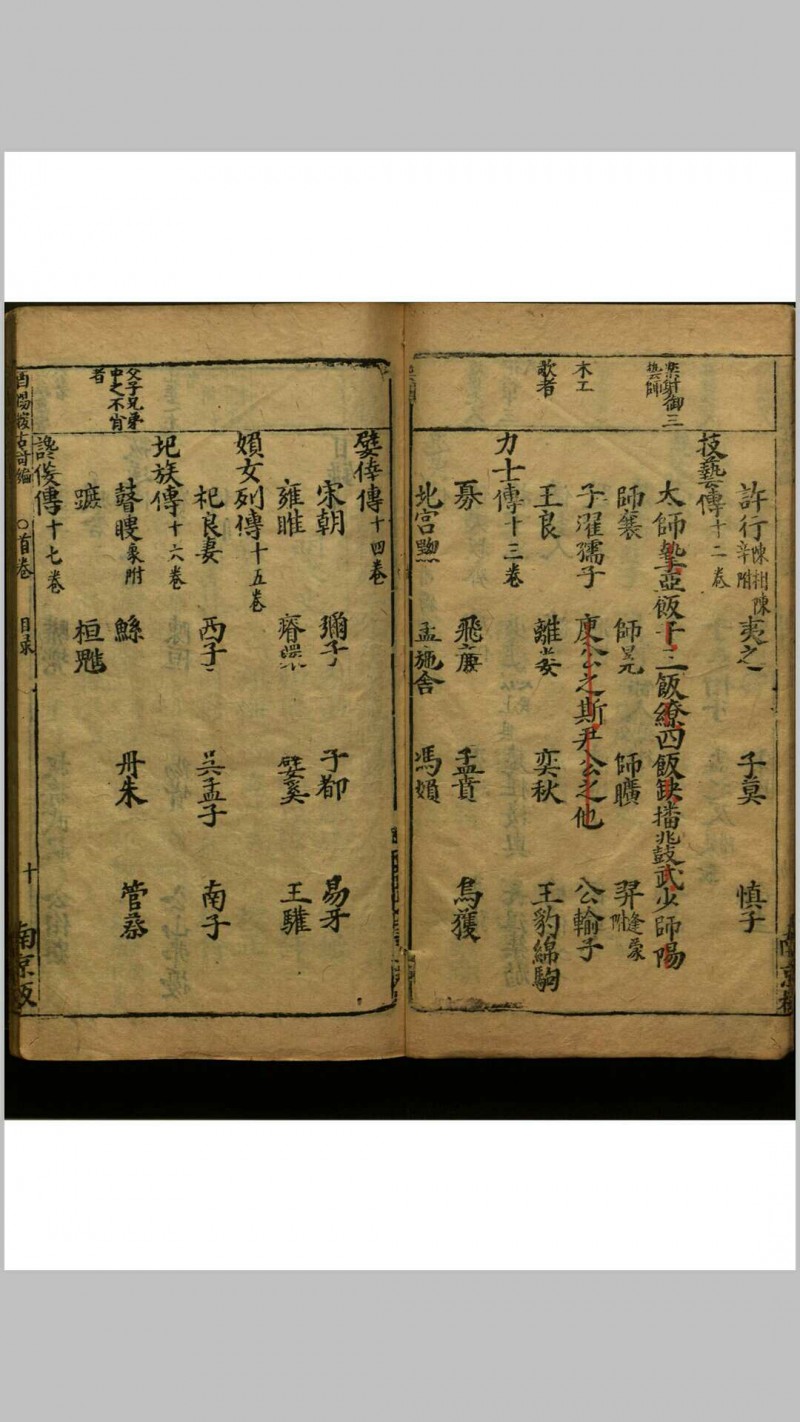 樂射御三
藝師
木工
歌者
許行陳相陳辛附 夷之 子莫 慎子
技藝傳十二卷
太師摯亞飯干三飯繚四飯缺播兆鼓武少師陽
師襄 師冕 師曠 羿逄蒙附
子濯孺子 庾公之斯尹公之他 公輸子
王良 離婁 奕秋 王豹綿駒
力士傳十三卷
奡 飛廉 孟賁 烏獲
北宮黝 孟施舍 馮婦
南京板
父子兄弟
中之不肖
者
嬖倖傳十四卷
宋朝 彌子 子都 易牙
雍雎 瘠環 嬖奚 王驩
婦女列傳十五卷
杞良妻 西子 吳孟子 南子
圯族傳十六卷
瞽瞍象附 鯀 丹朱 管蔡
蹠 桓魋
讒佞傳十七卷
酉陽 古奇編 ○首卷 目录 十 南京板